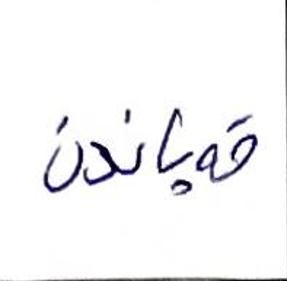 قەپاندن